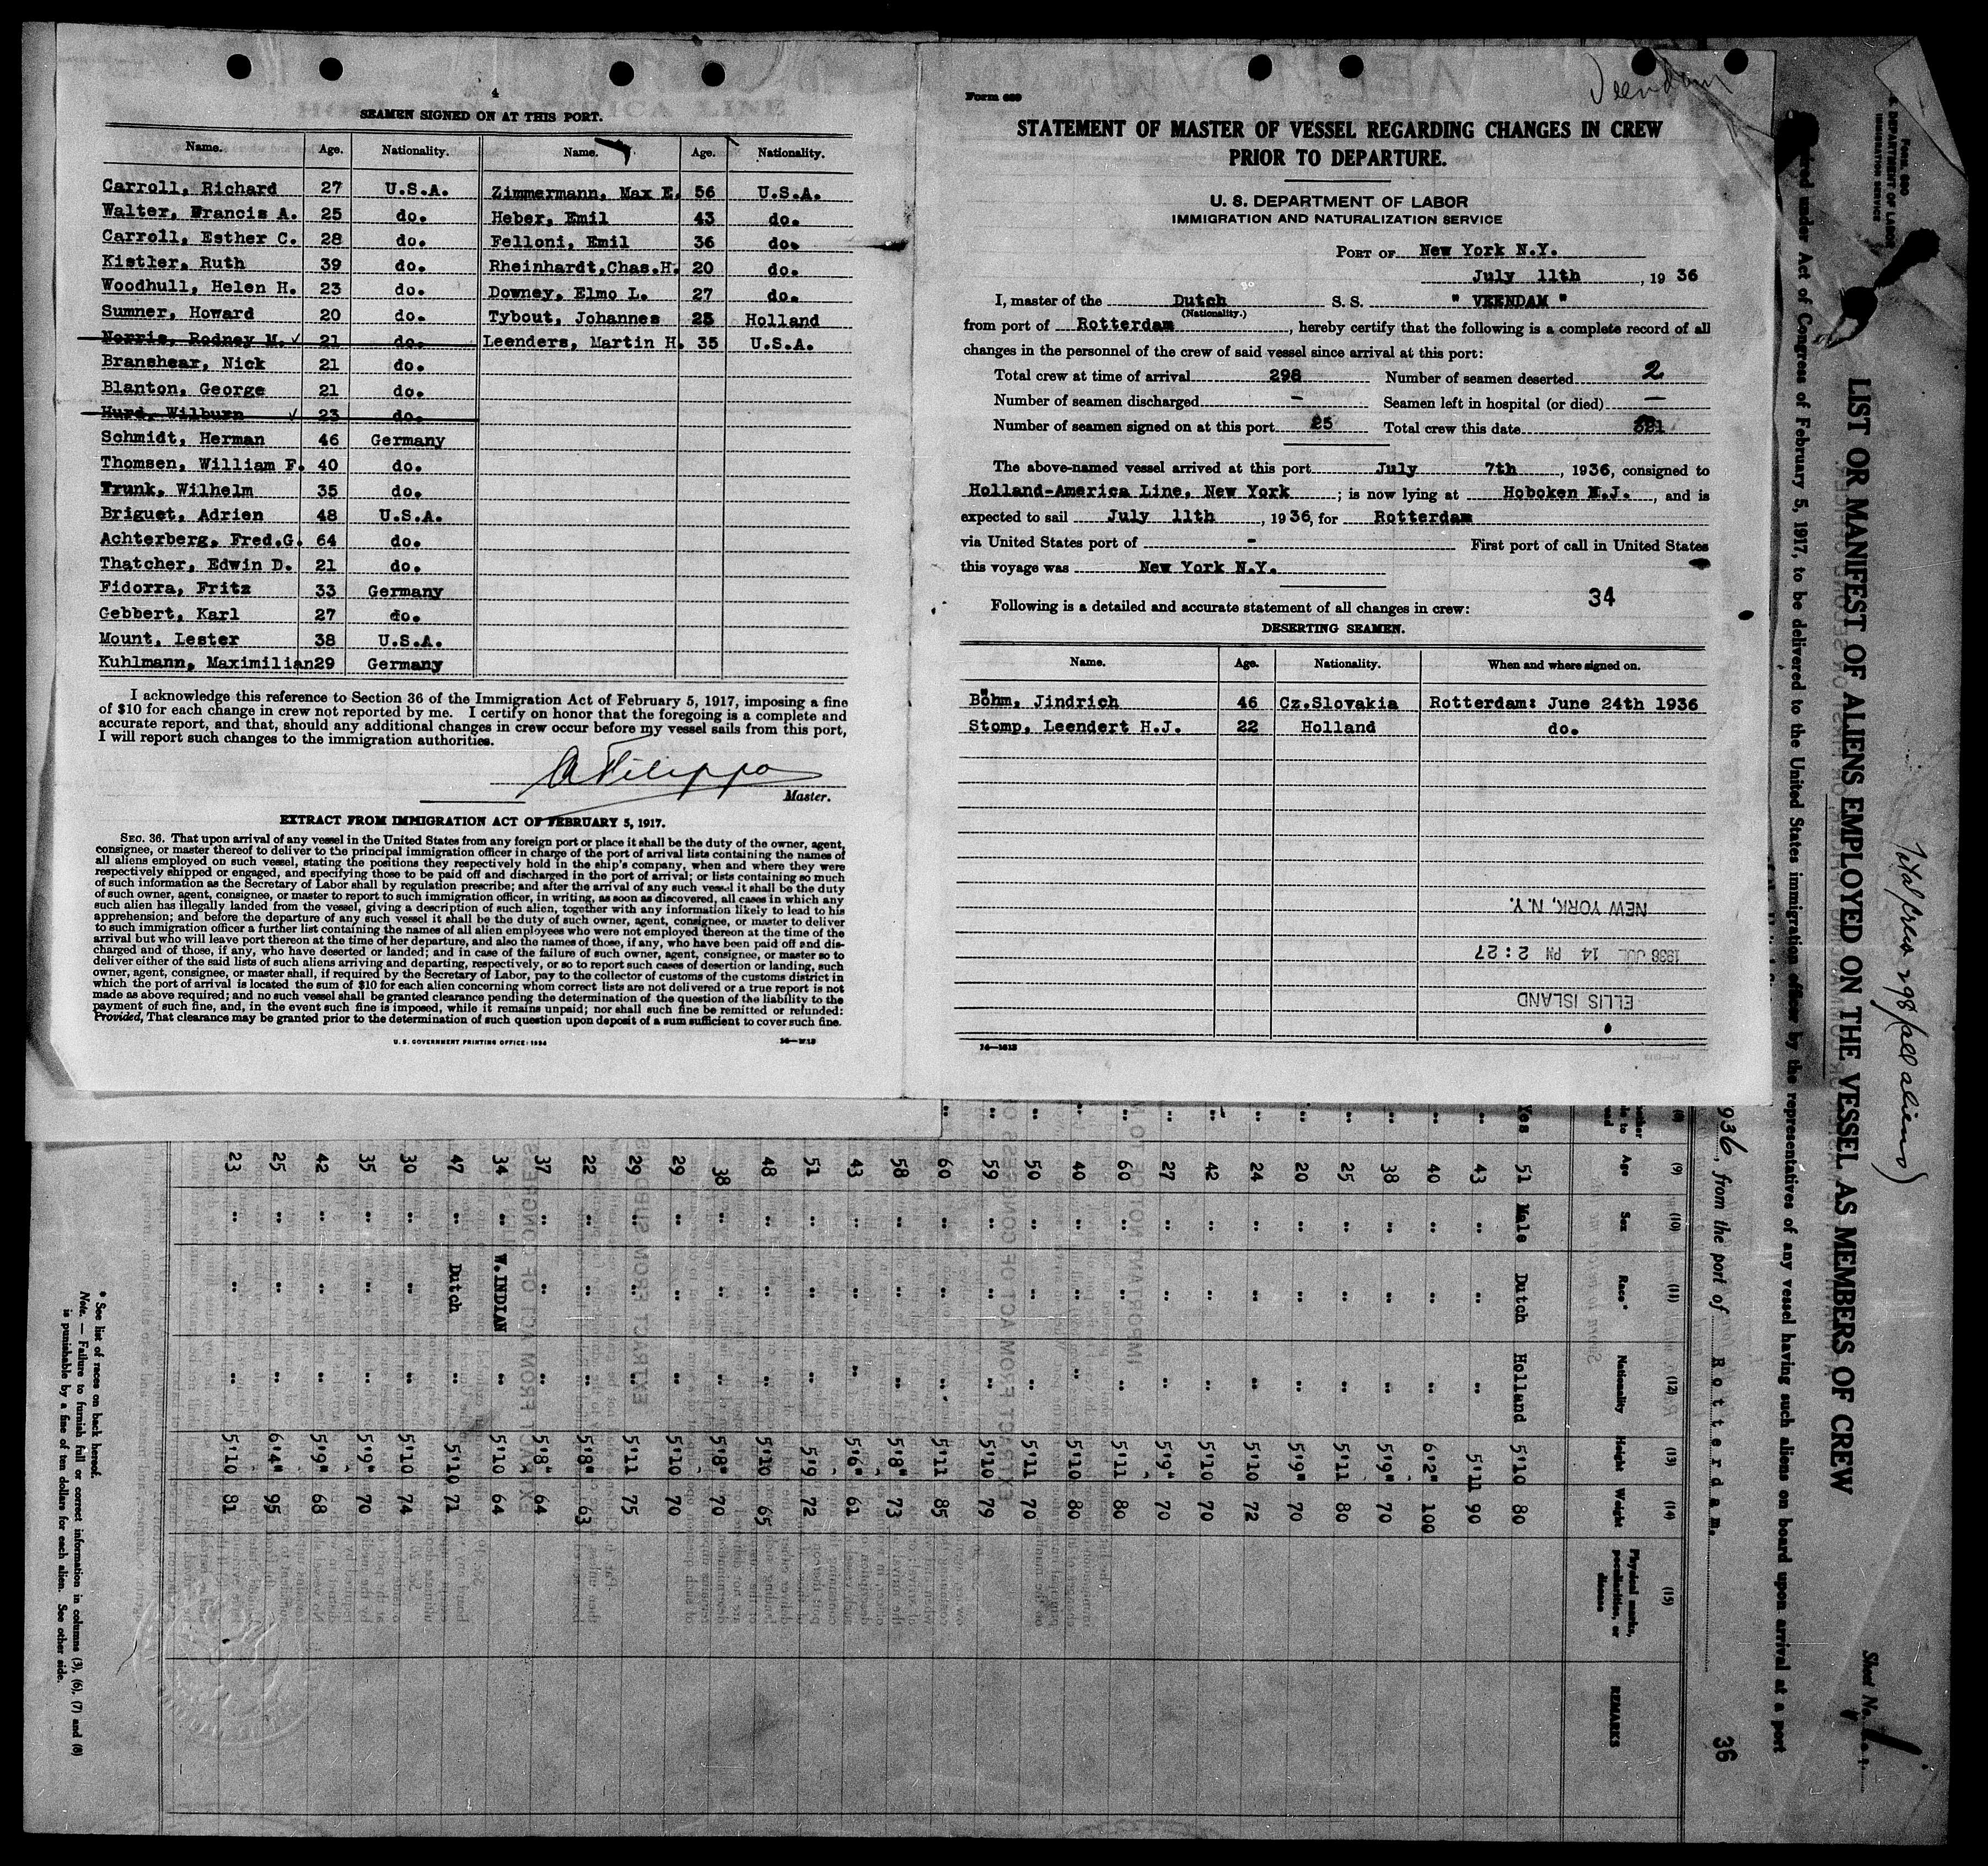 4
SEAMEN SIGNED ON AT THIS PORT.
Name. Age. Nationality. Name. Age. Nationality.
Carroll, Richard 27 U.S.A. Zimmermann, Max E. 56 U.S.A.
Walter, Francis A. 25 do. Heber, Emil 43 do.
Carroll, Esther C. 28 do. Felloni, Emil 36 do.
Kistler, Ruth 39 do. Rheinhardt, Chas.H. 20 do.
Woodhull, Helen H. 23 do. Downey, Elmo L. 27 do.
Sumner, Howard 20 do. Tybout, Johannes 25 Holland
Norris, Rodney M. 21 do. Leenders, Martin H. 35 U.S.A.
Branshear, Nick 21 do.
Blanton, George 21 do.
Hurd, Wilburn 23 do.
Schmidt, Herman 46 Germany
Thomsen, William F. 40 do.
Trunk, Wilhelm 35 do.
Briguet, Adrien 48 U.S.A.
Achterberg, Fred.G. 64 do.
Thatcher, Edwin D. 21 do.
Fidorra, Fritz 33 Germany
Gebbert, Karl 27 do.
Mount, Lester 38 U.S.A.
Kuhlmann, Maximilian 29 Germany
I acknowledge this reference to Section 36 of the Immigration Act of February 5, 1917, imposing a fine
of $10 for each change in crew not reported by me. I certify on honor that the foregoing is a complete and
accurate report, and that, should any additional changes in crew occur before my vessel sails from this port,
I will report such changes to the immigration authorities.
A Filippo
Master.
EXTRACT FROM IMMIGRATION ACT OF FEBRUARY 5, 1917.
SEC. 36. That upon arrival of any vessel in the United States from any foreign port or place it shall be the duty of the owner, agent,
consignee, or master thereof to deliver to the principal immigration officer in charge of the port of arrival lists containing the names of
all aliens employed on such vessel, stating the positions they respectively hold in the ship's company, when and where they were
respectively shipped or engaged, and specifying those to be paid off and discharged in the port of arrival; or lists containing so much
of such information as the Secretary of Labor shall by regulation prescribe; and after the arrival of any such vessel it shall be the duty
of such owner, agent, consignee, or master to report to such immigration officer, in writing, as soon as discovered, all cases in which any
such alien has illegally landed from the vessel, giving a description of such alien, together with any information likely to lead to his
apprehension; and before the departure of any such vessel it shall be the duty of such owner, agent, consignee, or master to deliver
to such immigration officer a further list containing the names of all alien employees who were not employed thereon at the time of the
arrival but who will leave port thereon at the time of her departure, and also the names of those, if any, who have been paid off and dis-
charged and of those, if any, who have deserted or landed; and in case of the failure of such owner, agent, consignee, or master so to
deliver either of the said lists of such aliens arriving and departing, respectively, or so to report such cases of desertion or landing, such
owner, agent, consignee, or master shall, if required by the Secretary of Labor, pay to the collector of customs of the customs district in
which the port of arrival is located the sum of $10 for each alien concerning whom correct lists are not delivered or a true report is not
made as above required; and no such vessel shall be granted clearance pending the determination of the question of the liability to the
payment of such fine, and, in the event such fine is imposed, while it remains unpaid; nor shall such fine be remitted or refunded:
Provided, That clearance may be granted prior to the determination of such question upon deposit of a sum sufficient to cover such fine.
U. S. GOVERNMENT PRINTING OFFICE: 1934
Veendam
Form 689
STATEMENT OF MASTER OF VESSEL REGARDING CHANGES IN CREW
PRIOR TO DEPARTURE.
U. S. DEPARTMENT OF LABOR
IMMIGRATION AND NATURALIZATION SERVICE
PORT OF New York N.Y.
July 11th, 1936
I, master of the Dutch S. S. " VEENDAM "
(Nationality.)
from port of Rotterdam, hereby certify that the following is a complete record of all
changes in the personnel of the crew of said vessel since arrival at this port:
Total crew at time of arrival 298 Number of seamen deserted 2
Number of seamen discharged - Seamen left in hospital (or died) —
Number of seamen signed on at this port 25 Total crew this date 321
The above-named vessel arrived at this port July 7th, 1936, consigned to
Holland-America Line, New York; is now lying at Hoboken N.J., and is
expected to sail July 11th, 1936, for Rotterdam
via United States port of - First port of call in United States
this voyage was New York N.Y.
34
Following is a detailed and accurate statement of all changes in crew:
DESERTING SEAMEN.
Name. Age. Nationality. When and where signed on.
Böhm, Jindrich 46 Cz.Slovakia Rotterdam: June 24th 1936
Stomp, Leendert H.J. 22 Holland do.
NEW YORK, N.Y.
1936 JUL 14 PM 2:27
ELLIS ISLAND
14—1613
LIST OR MANIFEST OF ALIENS EMPLOYED ON THE VESSEL AS MEMBERS OF CREW
Total Crew 298 (all aliens)
Sheet No. 1
under Act of Congress of February 5, 1917, to be delivered to the United States immigration officer by the representatives of any vessel having such aliens on board upon arrival at a port
936, from the port of Rotterdam.
36
(8) (9) (10) (11) (12) (13) (14) (15)
Age Sex Race* Nationality Height Weight Physical marks, peculiarities, or disease REMARKS
Yes 51 Male Dutch Holland 5'10 80
" 43 " " " 5'11 90
" 40 " " " 6'2" 100
" 38 " " " 5'9" 70
" 25 " " " 5'11 80
" 20 " " " 5'9" 70
" 24 " " " 5'10 72
" 42 " " " 5'10 70
" 27 " " " 5'9" 70
" 60 " " " 5'11 80
" 40 " " " 5'10 80
" 50 " " " 5'11 70
" 59 " " " 5'10 79
" 60 " " " 5'11 85
58 " " " 5'8" 73
43 " " " 5'6" 61
51 " " " 5'9 72
48 " " " 5'10 65
38 " " " 5'8" 70
29 " " " 5'10 70
29 " " " 5'11 75
22 " " " 5'8" 63
37 " " " 5'8" 64
34 " W.INDIAN " 5'10 64
47 " Dutch " 5'10 71
30 " " " 5'10 74
35 " " " 5'9" 70
42 " " " 5'9" 68
25 " " " 6'4" 95
23 " " " 5'10 81
* See list of races on back hereof.
Note. — Failure to furnish full or correct information in columns (3), (6), (7) and (8)
is punishable by a fine of ten dollars for each alien. See other side.